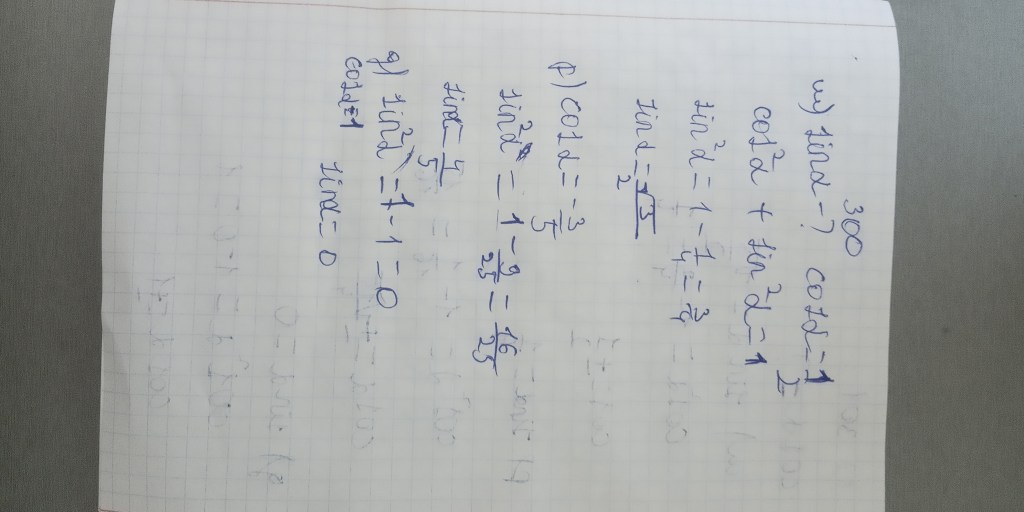 300
m) sinα-? cosα=1/2
cos²α + sin²α=1
sin²α = 1 - 1/4 = 3/4
sinα = √3/2
f) cosα = -3/5
sin²α = 1 - 9/25 = 16/25
sinα = 4/5
g) sin²α = 1-1=0
cosα=1 sinα=0